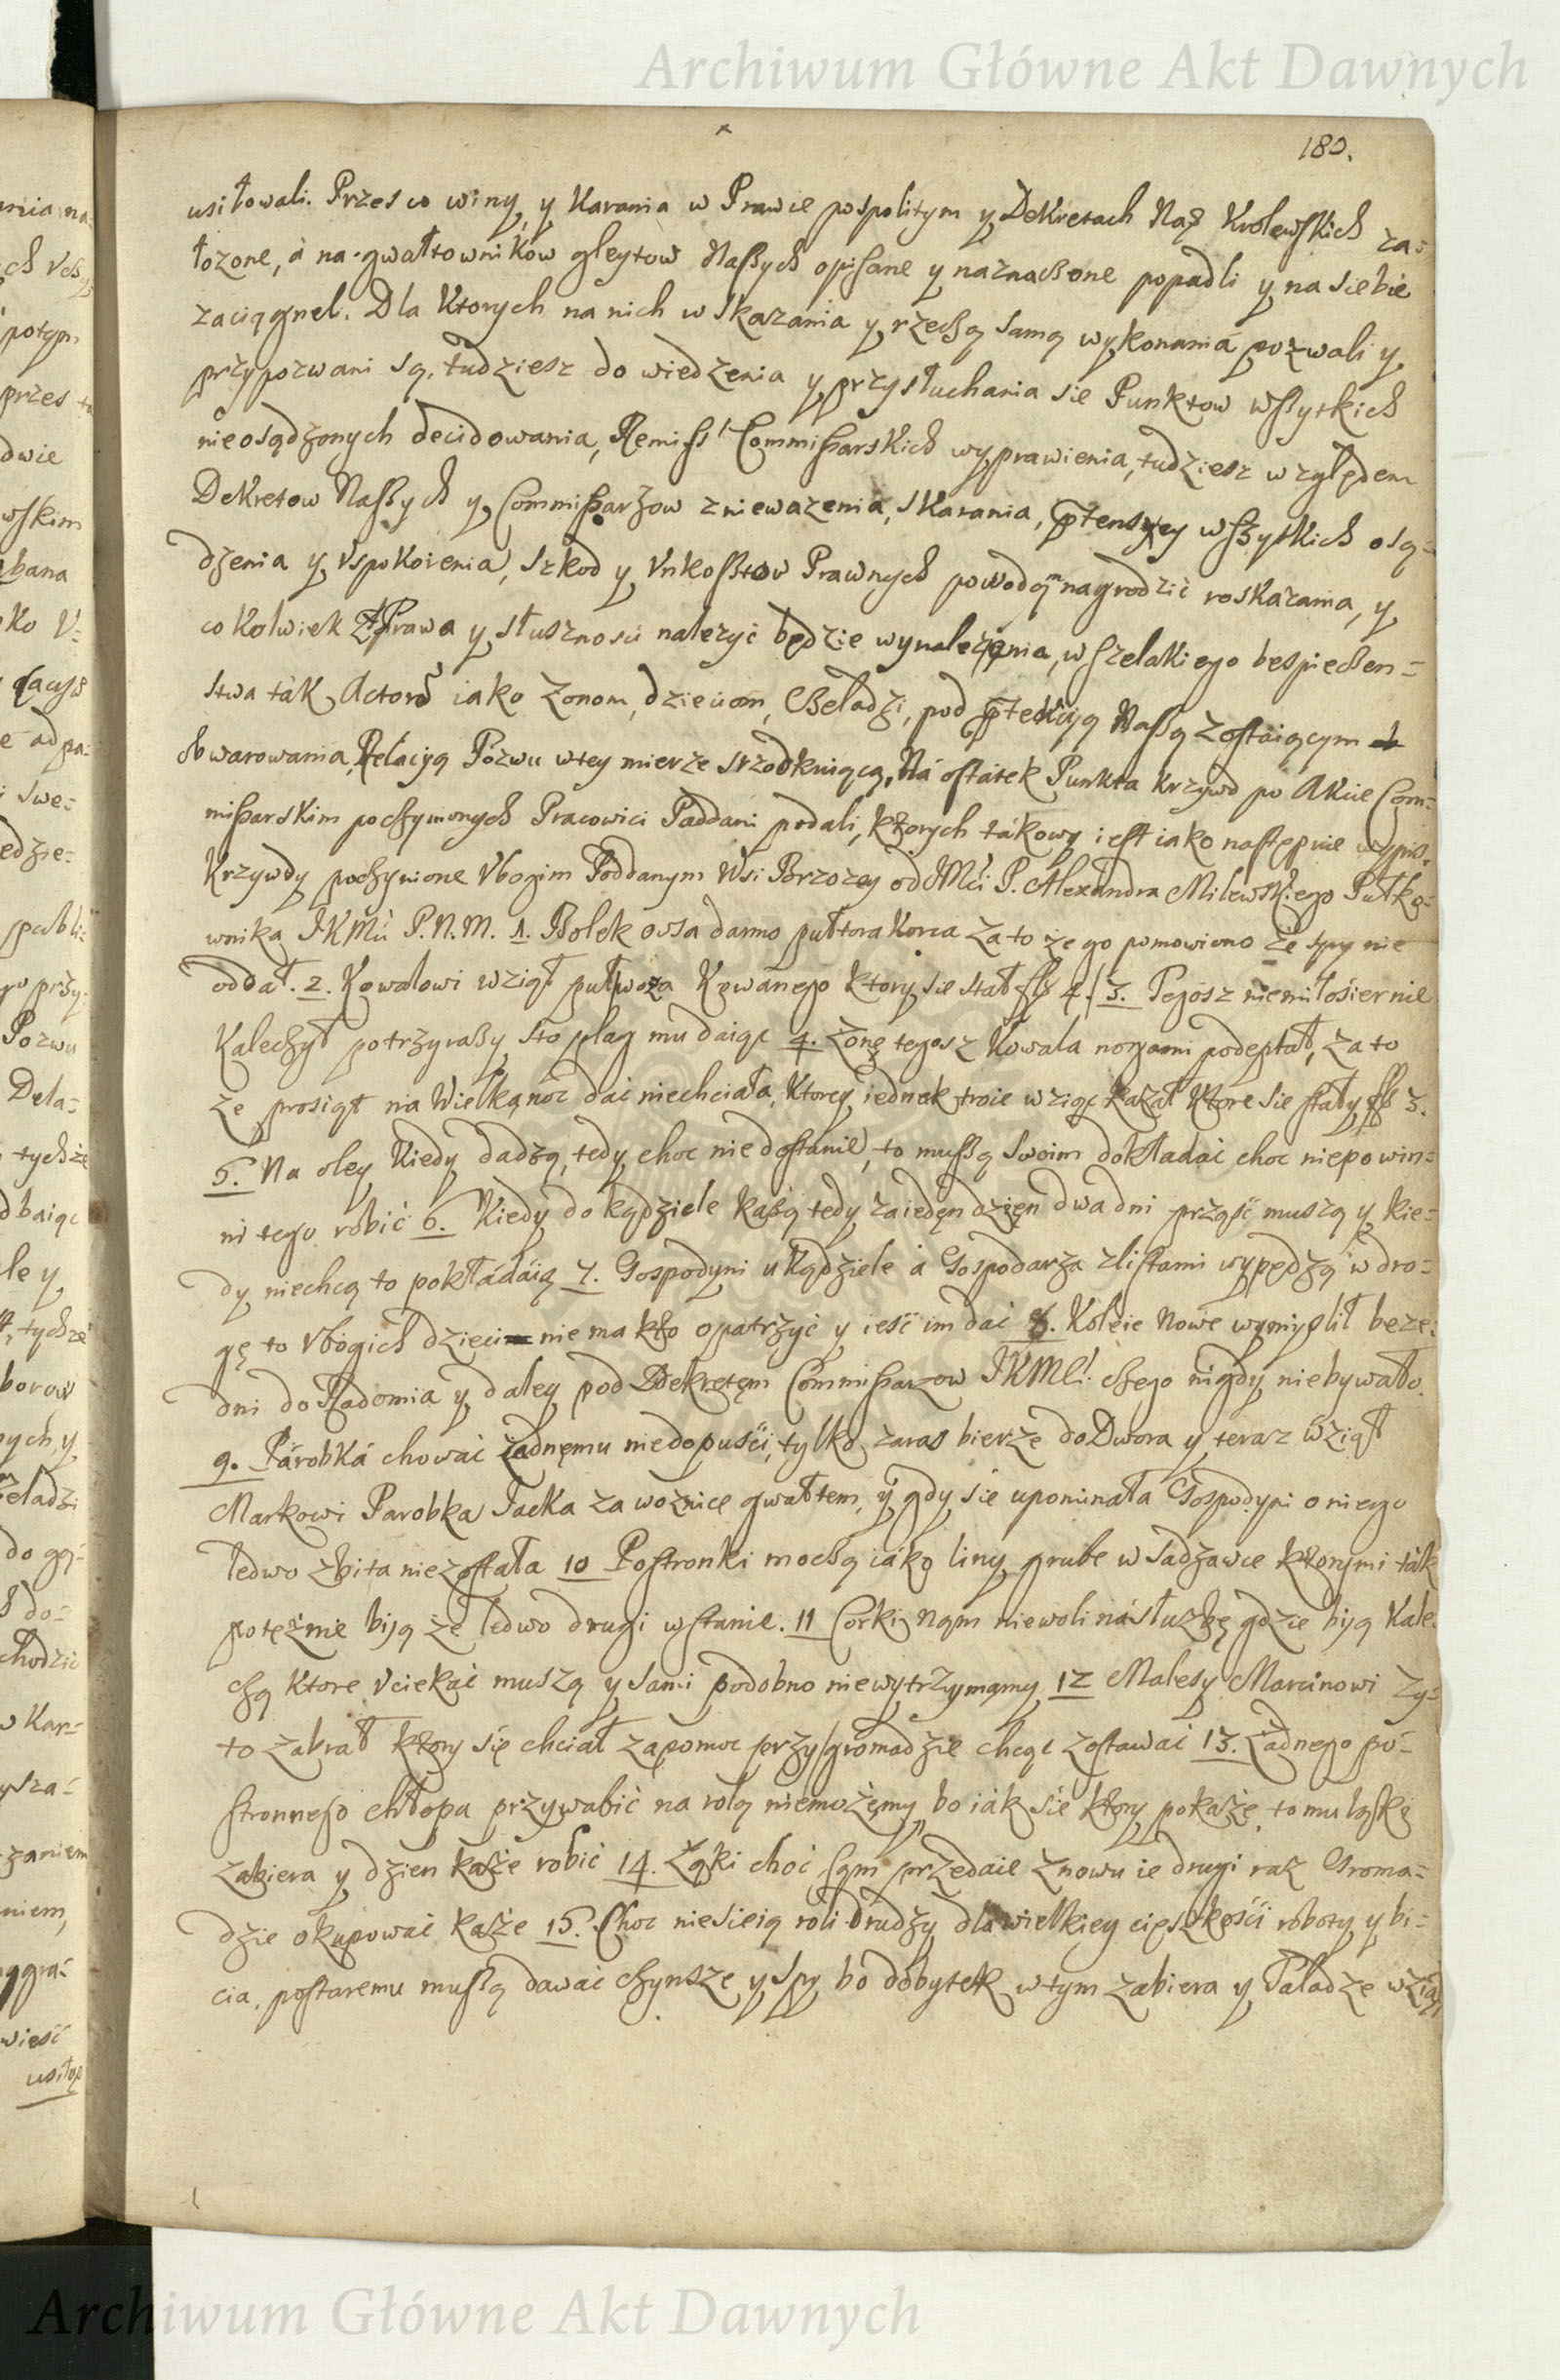 Archiwum Główne Akt Dawnych
180.
usiłowali. Przes co winy, y Karania w Prawie pospolitym y Dekretach Nas Krolewskich za=
łozone, á na gwałtownikow gleytow Naßych opisane y naznaczone popadli y na siebie
zaciągneli. Dla Ktorych na nich wskazania y rzeczą samą wykonania pozwali y
przypozwani są, tudziesz do wiedzenia y przysłuchania sie Punktow wßytkich
nieosądzonych decidowania, Remiss Commißarskich wyprawienia, tudziesz względem
Dekretow Naßych y Commißarzow zniewazenia, skarania, ptensyey wßytkich osą=
dzenia y Vspokoienia, szkod y Vnkosztow Prawnych powodom nagrodzić roskazania, y
cokolwiek z Prawa y słusznosci nalezyć będzie wynalezienia, wszelakiego bespieczen=
stwa ták Actorom iako Zonom, dzieciom, Czeladzi, pod ptekcyą Naßą zostaiącym
obwarowania, Relacyą Pozwu wtey mierze srzodkuiącą, Ná ostátek Punkta krzywd po Akcie Com=
mißarskim poczynionych Pracowici Paddani podali, ktorych tákowy iest iako nastepuie wypis.
Krzywdy poczynione Vbogim Poddanym Wsi Borzozey od JMci P. Alexandra Milewskiego Pułko=
wnika JKMci P.N.M. 1. Bolek owsa darmo pułtora korca za to że go pomowiono że spy nie
oddał. 2. Kowalowi wziął puł woza Kowanego ktory sie stał fl 4. 3. Tegosz niemiłosiernie
Kaleczył potrzyrazy sto plag mu daiąc 4. żonę tegosz Kowala nogami podeptał, za to
że prosiąt na Wielkąnoc dać niechciała, Ktorey iednak troie wziąć kazał Ktore sie stały fl 3.
5. Na oley kiedy dadzą, tedy choc niedostanie, to mußą swoim dokładać choc niepowin=
ni tego robić 6. Kiedy do kądziele każą tedy zaieden dzień dwa dni prząść muszą y kie=
dy niechcą to pokłádáią 7. Gospodyni u Kądziele á Gospodarza zlistami wypędzą w dro=
gę to Vbogich dzieci nie ma kto opatrzyć y ieść im dać 8. Koleie Nowe wymyslił beze=
dni do Radomia y daley pod Dekretem Commißarzow JKMCi. czego nigdy niebywało.
9. Párobká chować żadnemu niedopuści, tylko zaras bierze do Dwora y teraz wziął
Markowi Parobka Jacka za woznice gwałtem, y gdy sie upominała Gospodyni o niego
ledwo zbita niezostała 10 Postronki moczą iáko liny grube w Sadzawce ktorymi ták
poteżnie biją że ledwo drugi wstanie. 11 Corki Nąm niewoli náśłuzbę gdzie biją kale=
czą ktore Vciekać muszą y sami podobno niewytrzymamy 12 Malesy Marcinowi Zy=
to zabrał ktory się chciał zapomoc przy gromadzie chcąc zostawać 13. Zadnego po=
stronnego chłopa przywabić na rolą niemożemy, bo iák sie ktory pokaże, to mu łąskę
zabiera y dzien każe robić 14. Łąki choć sąm przedaie znowu ie drugi raz Groma=
dzie okupować każe 15. Choc niesieią roli drudzy dla wielkiey cięszkości roboty y bi=
cia, postaremu mußą dawać czynsze y spy bo dobytek wtym zabiera y Taladze wziął
Archiwum Główne Akt Dawnych